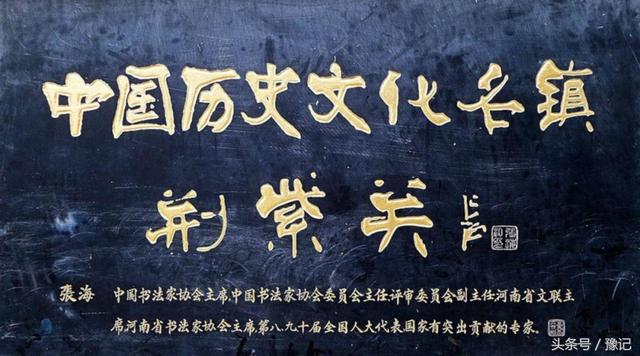 中国历史文化名镇
荆紫关
張海 中国书法家协会主席中国书法家协会委员会主任评审委员会副主任河南省文联主
席河南省书法家协会主席,第八九十届全国人大代表国家有突出贡献的专家。
头条号／豫记